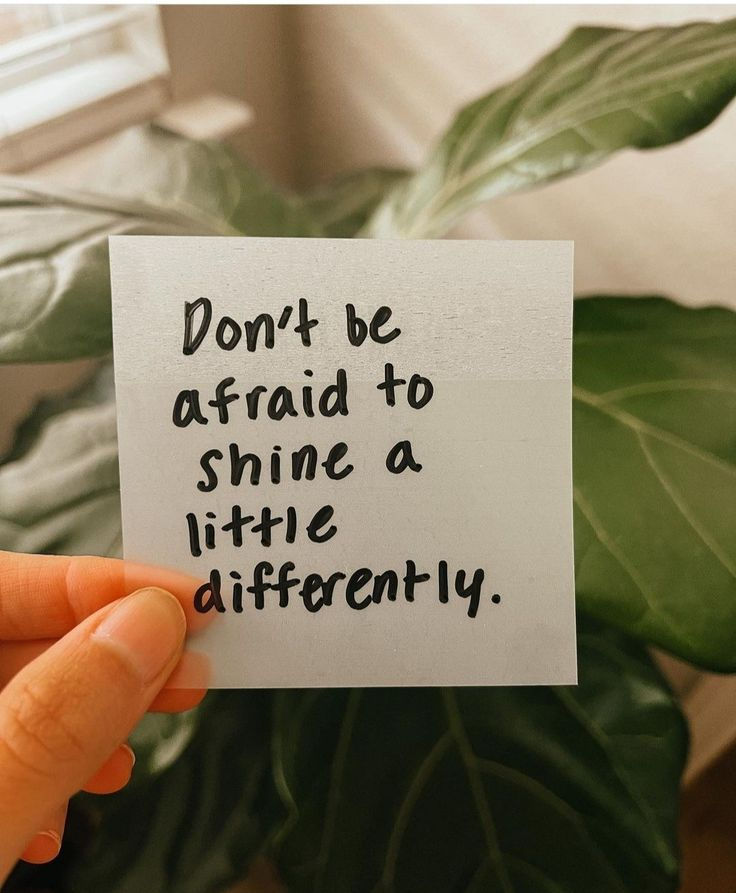 Don't be
afraid to
shine a
little
differently.